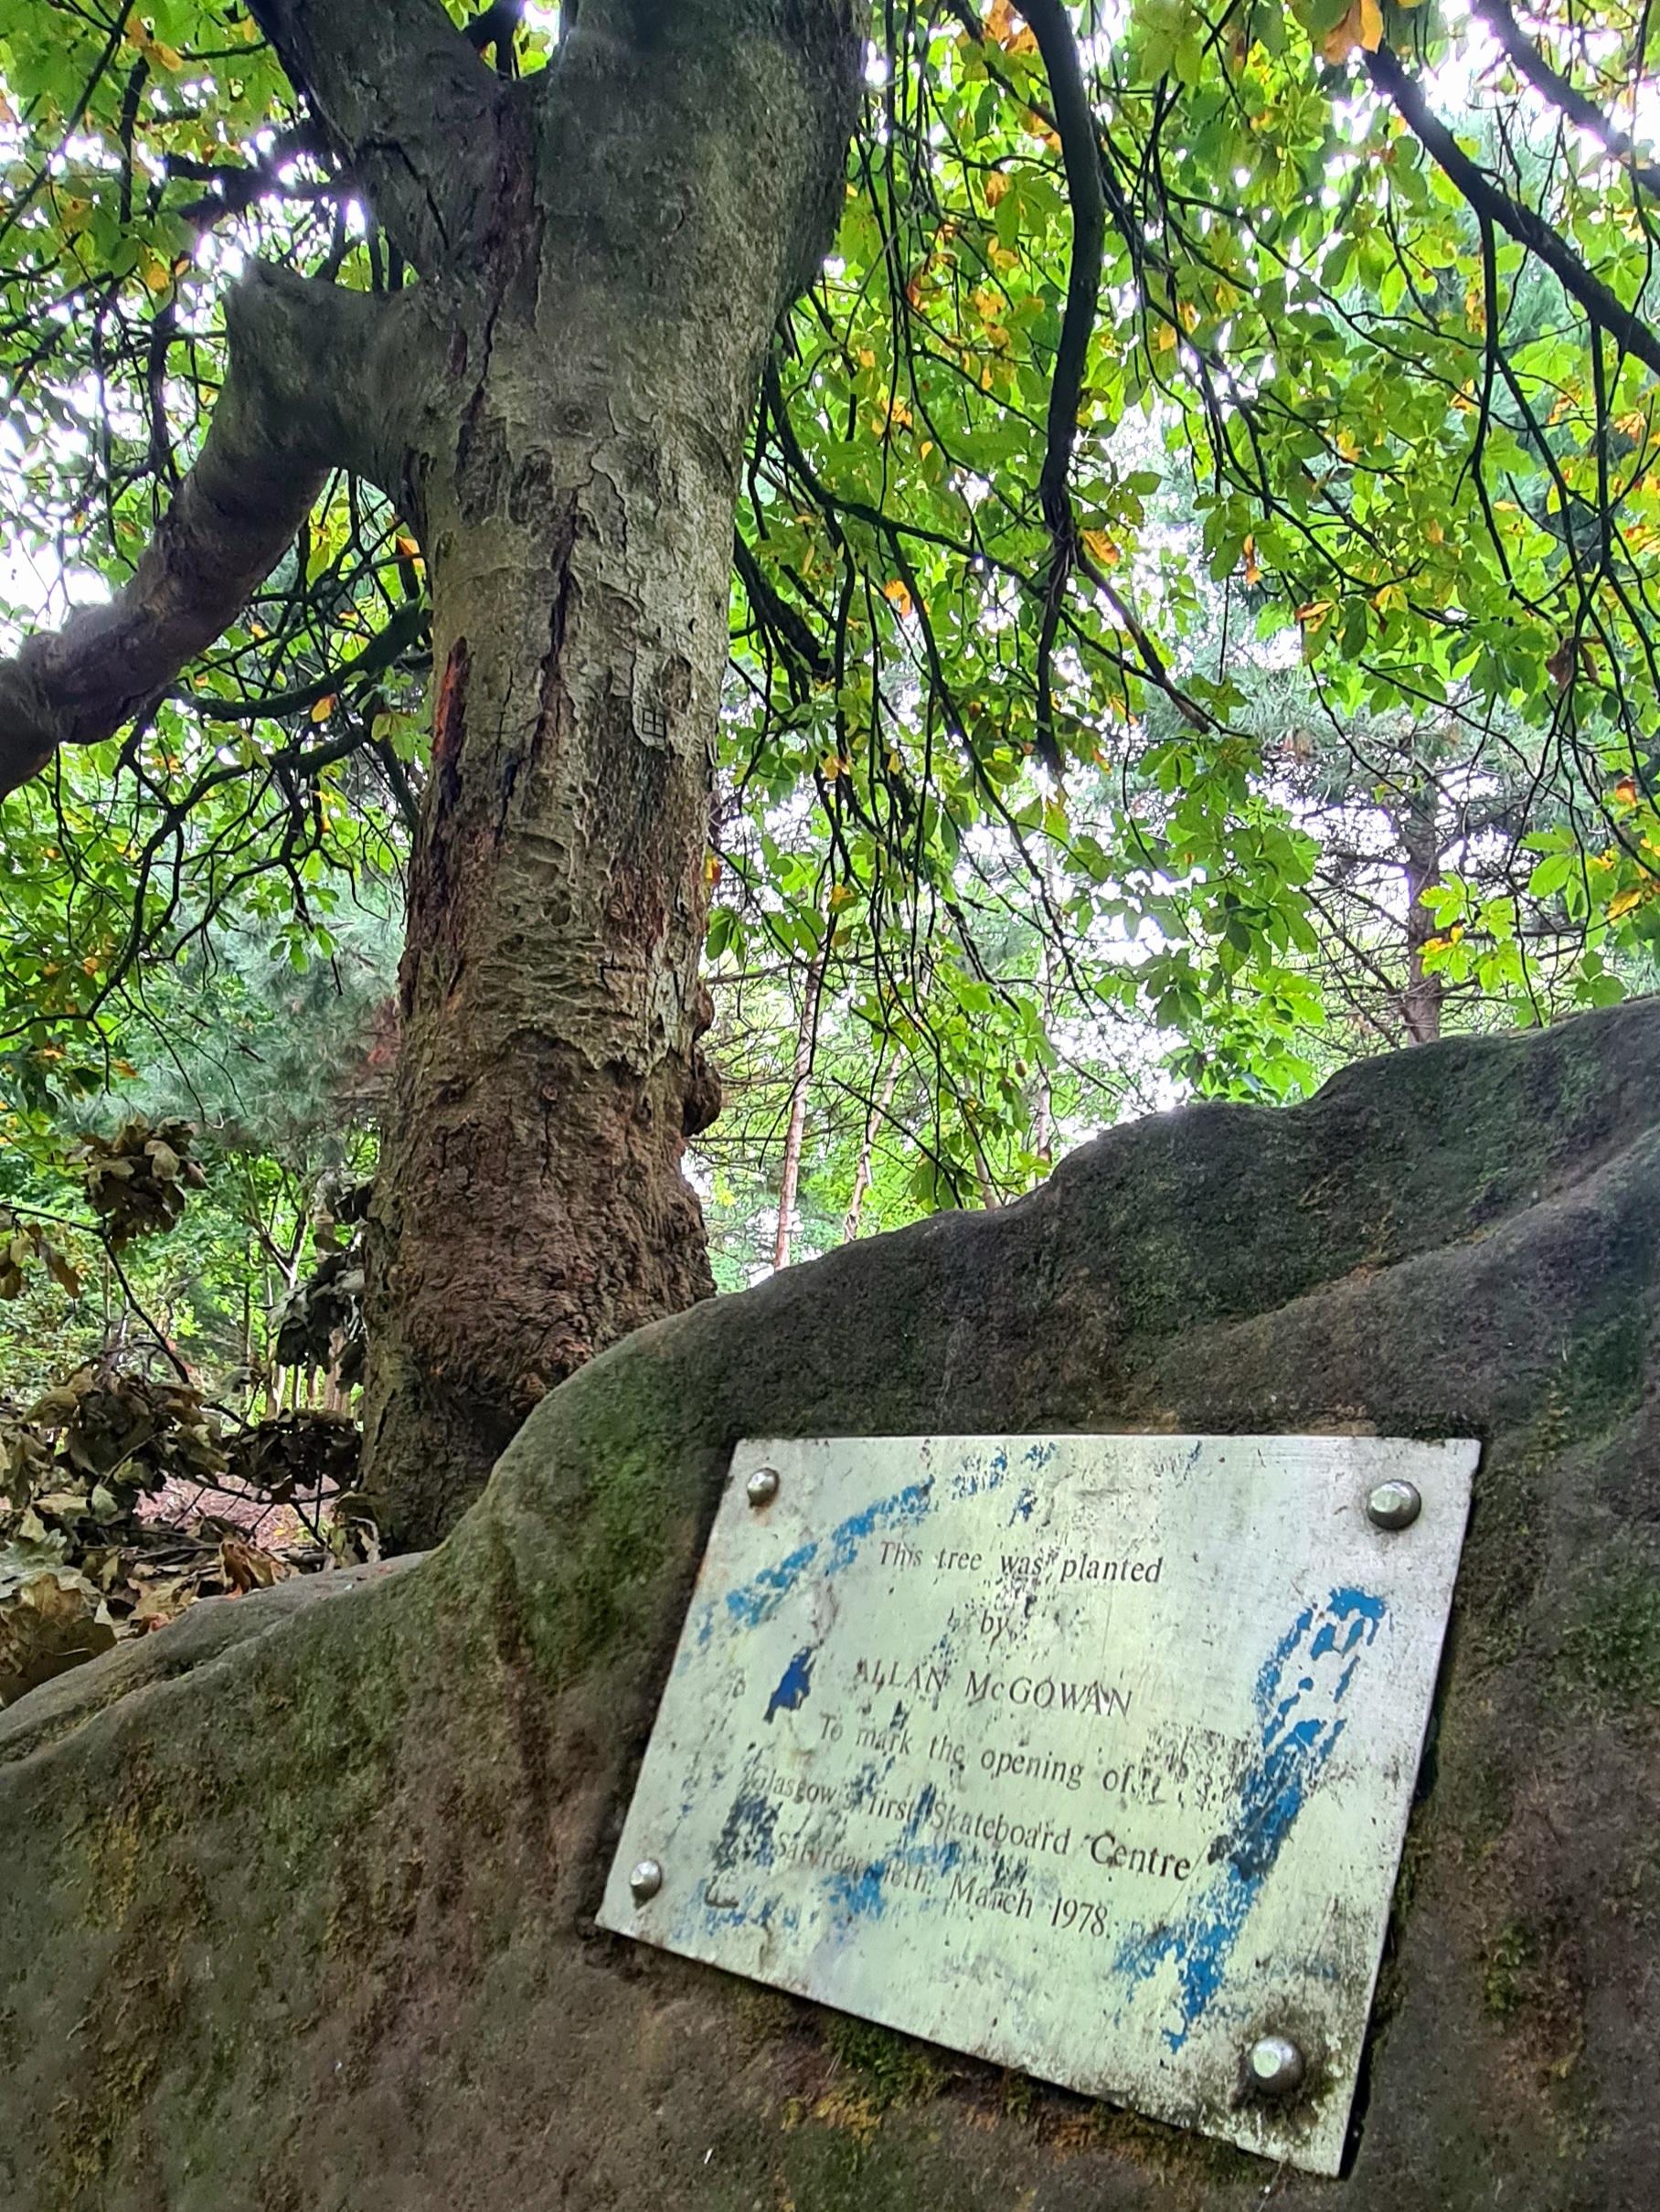 This tree was planted
by
ALLAN McGOWAN
To mark the opening of
Glasgow's first Skateboard Centre
Saturday 18th. March 1978.